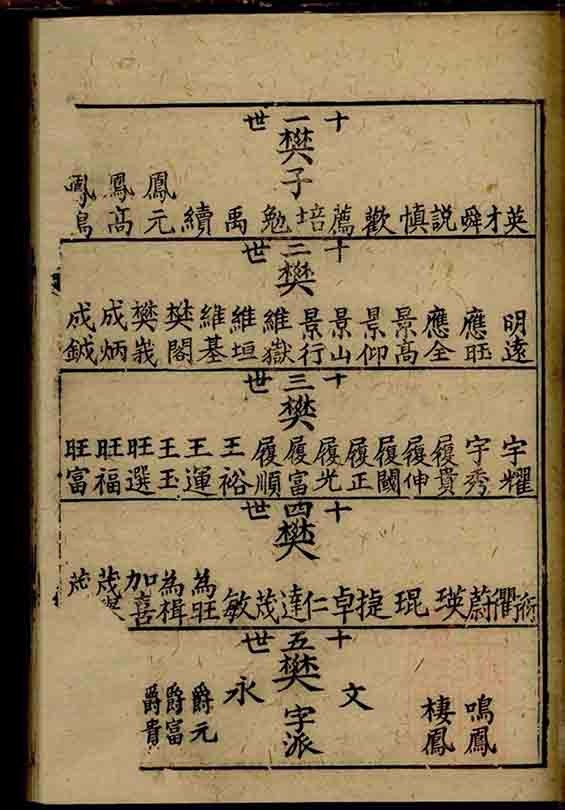 十一世
樊子
英
才
舜
說
慎
歡
薦
培
勉
禹
續
鳳元
鳳高
鳳
十二世
樊
明遠
應旺
應全
景高
景仰
景山
景行
維嶽
維垣
維基
樊閣
樊峩
成炳
成鋮
十三世
樊
宇耀
宇秀
履貴
履伸
履閫
履正
履光
履富
履順
王裕
王運
王玉
旺選
旺福
旺富
十四世
樊
衍
衢
蔚
瑛
琨
捷
卓
仁
達
茂
敏
為旺
為楫
加喜
茂
十五世
樊宇派
鳴鳳
棲鳳
文
永
爵元
爵富
爵貴